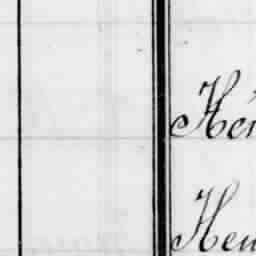 Hen
Hen